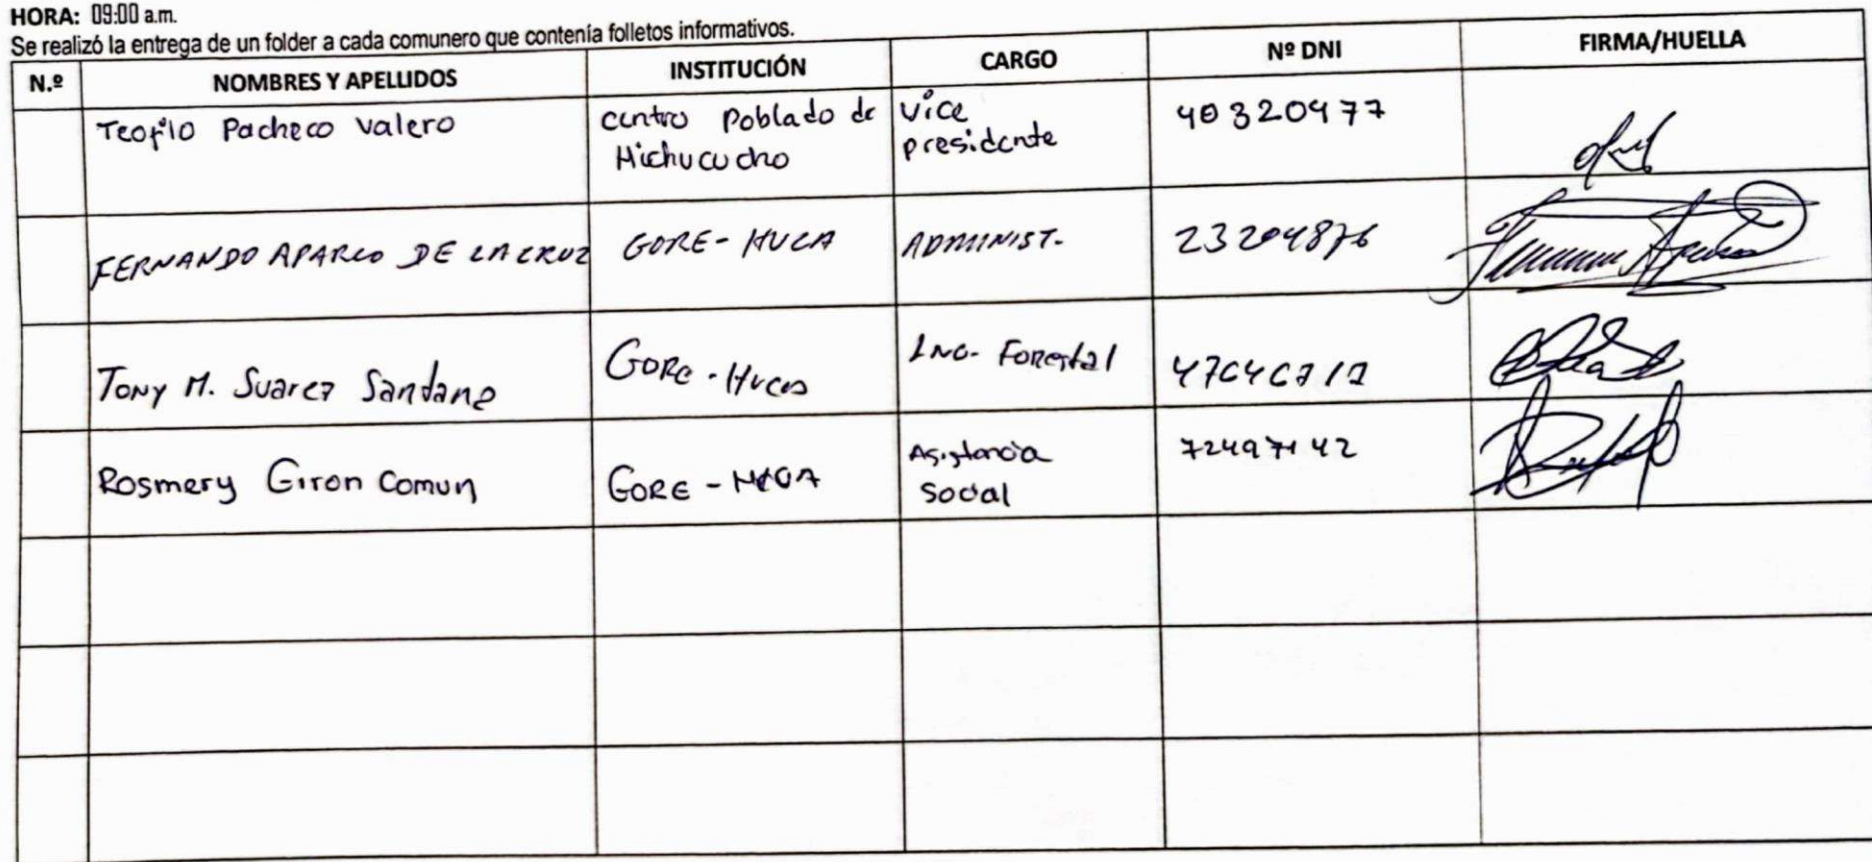 HORA: 09:00 a.m.
Se realizó la entrega de un folder a cada comunero que contenía folletos informativos.
N.º NOMBRES Y APELLIDOS INSTITUCIÓN CARGO Nº DNI FIRMA/HUELLA
Teofilo Pacheco Valero centro Poblado de Vice 40320477
Michucucho presidente
FERNANDO APARCO DE LA CRUZ GORE - HVCA ADMINIST. 23204876
Tony M. Suarez Santana GORE - Hvca Ing. Forestal
Rosmery Giron Comun GORE - HVCA Asistencia
Social